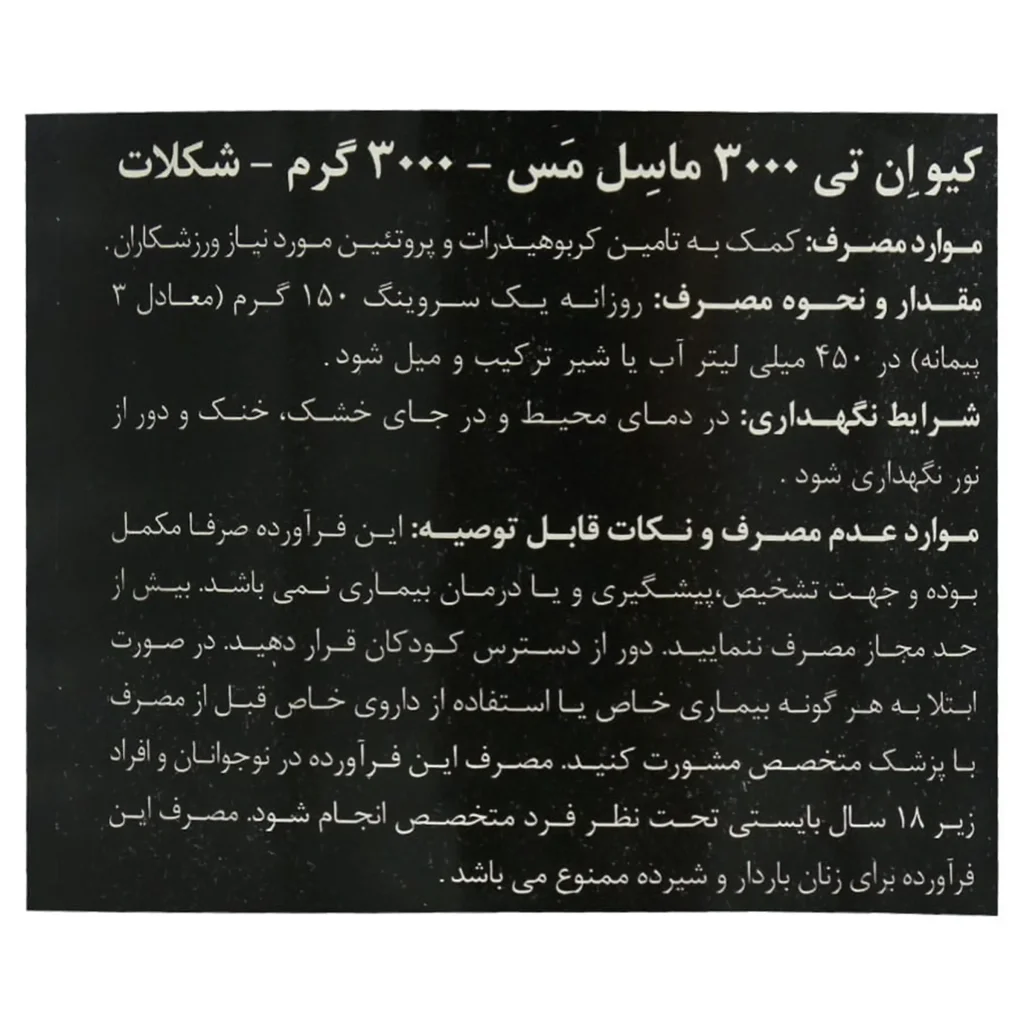 کیو اِن تی ۳۰۰۰ ماسِل مَس - ۳۰۰۰ گرم - شکلات
موارد مصرف: کمک به تامین کربوهیدرات و پروتئین مورد نیاز ورزشکاران.
مقدار و نحوه مصرف: روزانه یک سروینگ ۱۵۰ گرم (معادل ۳
پیمانه) در ۴۵۰ میلی لیتر آب یا شیر ترکیب و میل شود.
شرایط نگهداری: در دمای محیط و در جای خشک، خنک و دور از
نور نگهداری شود.
موارد عدم مصرف و نکات قابل توصیه: این فرآورده صرفا مکمل
بوده و جهت تشخیص،پیشگیری و یا درمان بیماری نمی باشد. بیش از
حد مجاز مصرف ننمایید. دور از دسترس کودکان قرار دهید. در صورت
ابتلا به هر گونه بیماری خاص یا استفاده از داروی خاص قبل از مصرف
با پزشک متخصص مشورت کنید. مصرف این فرآورده در نوجوانان و افراد
زیر ۱۸ سال بایستی تحت نظر فرد متخصص انجام شود. مصرف این
فرآورده برای زنان باردار و شیرده ممنوع می باشد.